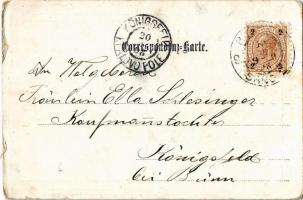 KÖNIGSFELD
20
Correspondenz-Karte.
An Wohlgeboren
Fräulein Ella Schlesinger
Kaufmannstochter
Königsfeld
bei Brünn